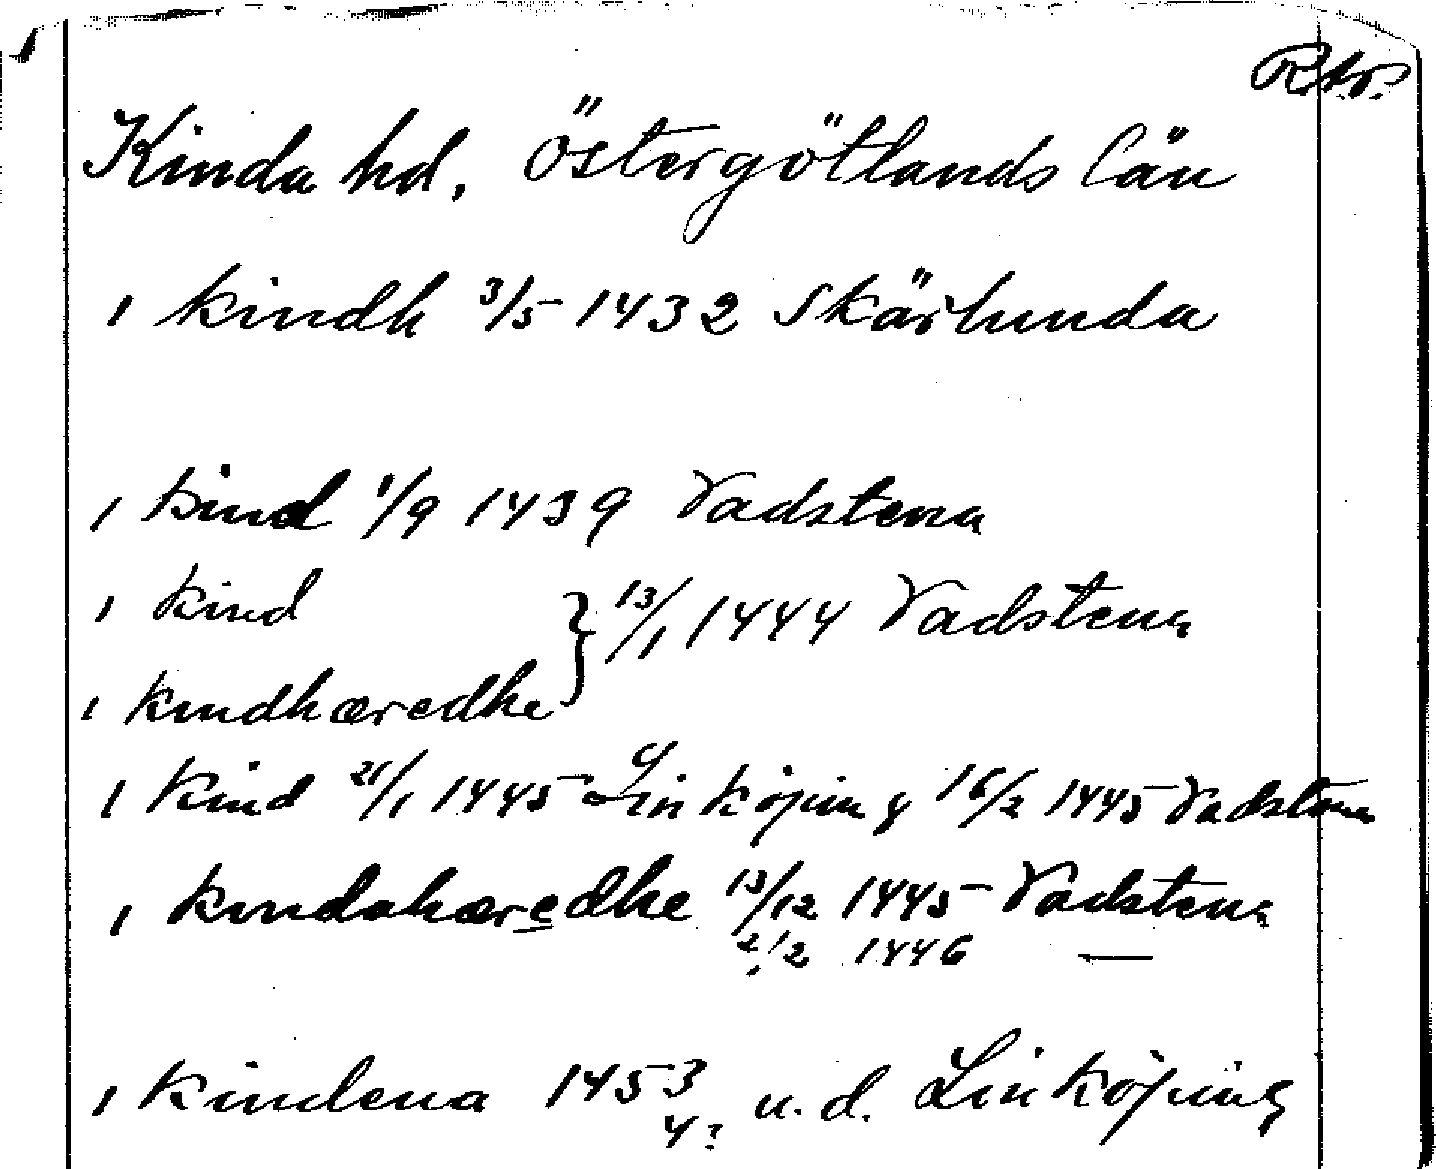 Rkr.
Kinda hd. Östergötlands län
i kindh 3/5 1432 Skärlunda
i kind 1/9 1439 Vadstena
i kind } 13/1 1444 Vadstena
i kindhæredhe
i kind 21/1 1445 Linköping 16/2 1445 Vadstena
i kindahæredhe 13/12 1445 Vadstena
2/2 1446 —
i kindena 1453 u.d. Linköping
4?